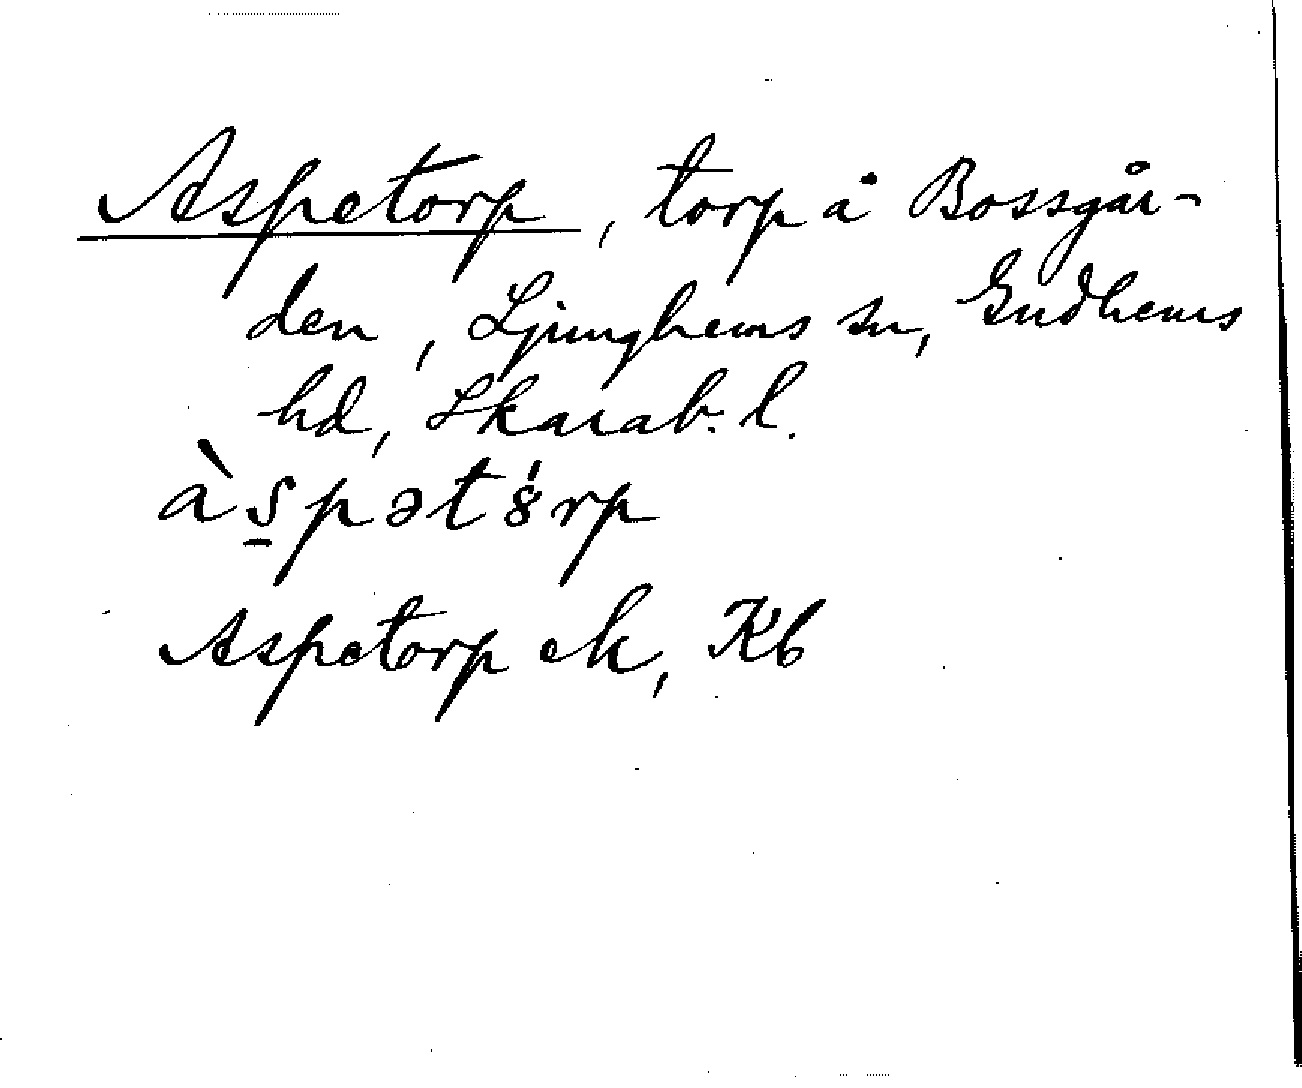 Aspetorp, torp å Bossgår-
den, Ljunghems sn, Gudhems
hd, Skarab. l.
às̠pətȣ́rp
Aspetorp ek, Kb